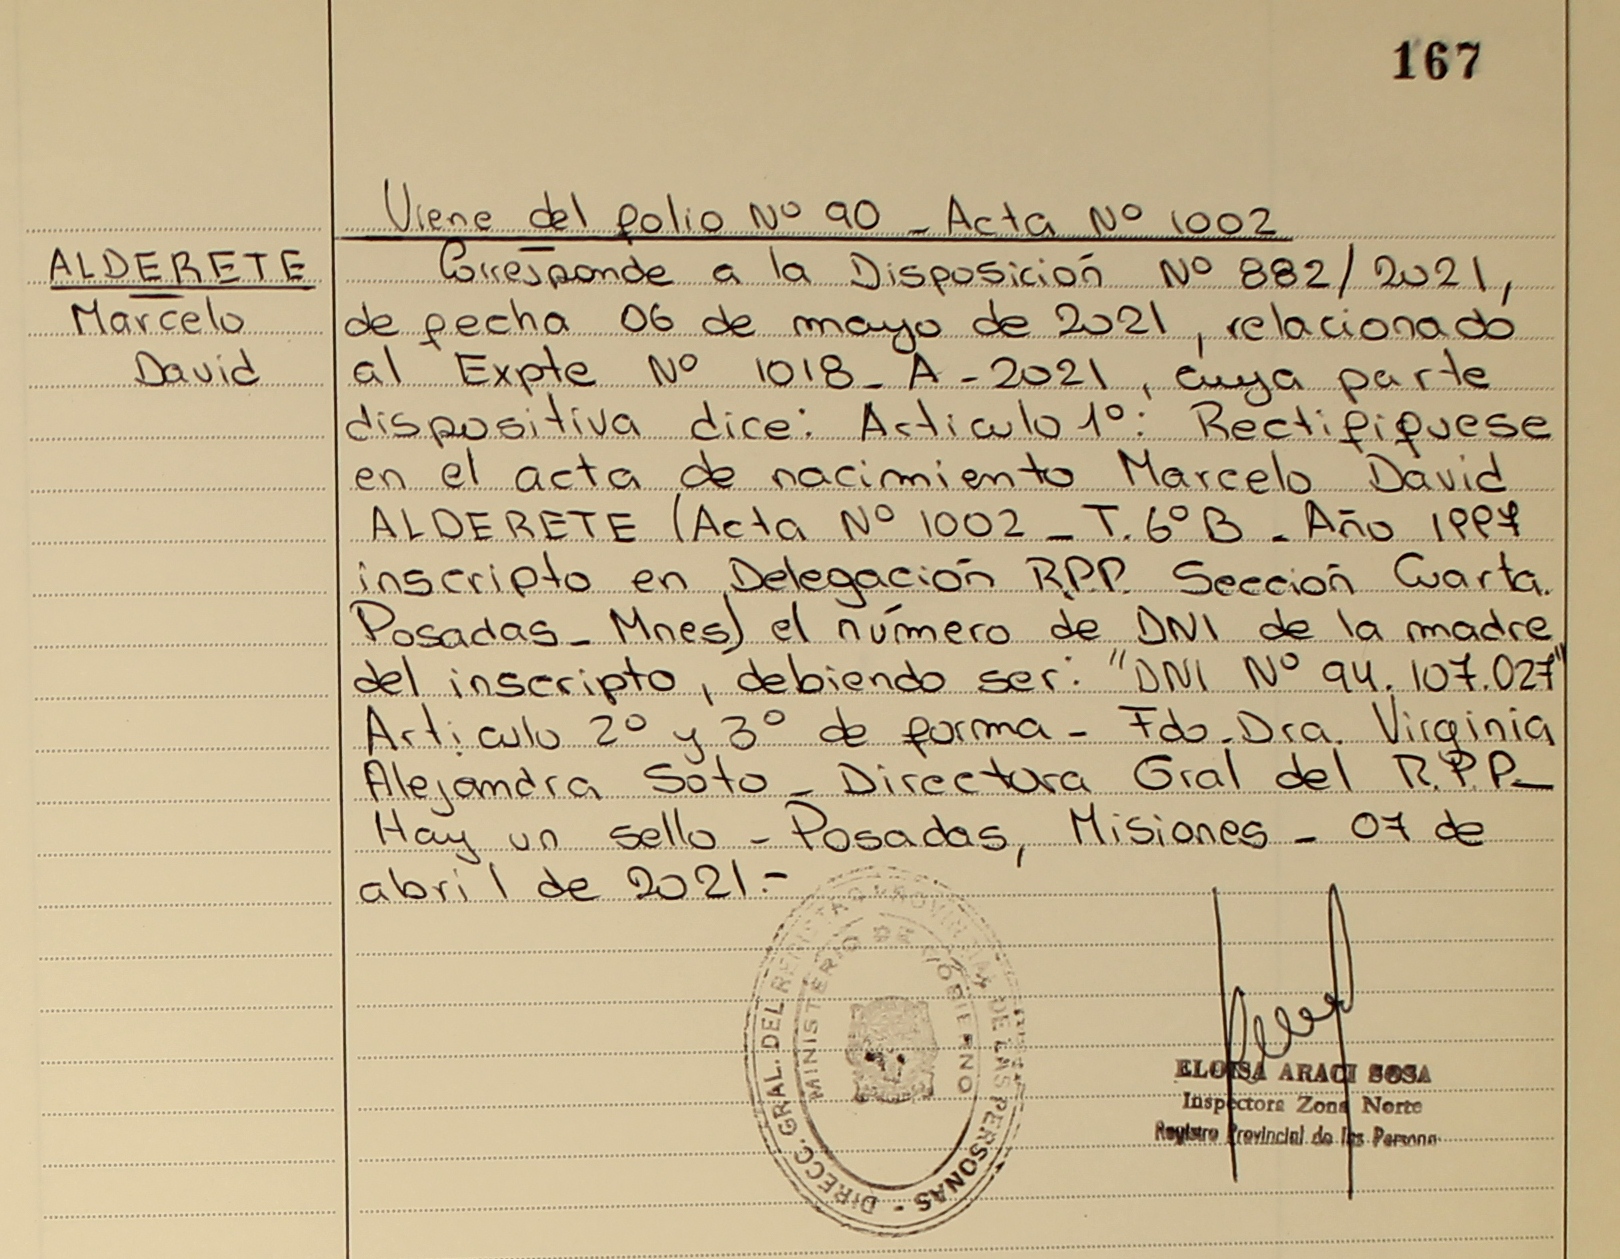 167
Viene del folio Nº 90 - Acta Nº 1002
ALDERETE
Marcelo
David
Corresponde a la Disposición Nº 882/2021,
de fecha 06 de mayo de 2021, relacionado
al Expte Nº 1018 - A - 2021, cuya parte
dispositiva dice: Articulo 1º: Rectifiquese
en el acta de nacimiento Marcelo David
ALDERETE (Acta Nº 1002 - T. 6º B - Año 1997
inscripto en Delegación R.P.P. Sección Cuarta.
Posadas - Mnes) el número de DNI de la madre
del inscripto, debiendo ser: "DNI Nº 94.107.027"
Articulo 2º y 3º de forma - Fdo. Dra. Virginia
Alejandra Soto - Directora Gral del R.P.P-
Hay un sello - Posadas, Misiones - 07 de
abril de 2021.-
DIRECC. GRAL. DEL REGISTRO PROVINCIAL DE LAS PERSONAS -
MINISTERIO DE GOBIERNO
ELOISA ARACI SOSA
Inspectora Zona Norte
Registro Provincial de las Personas